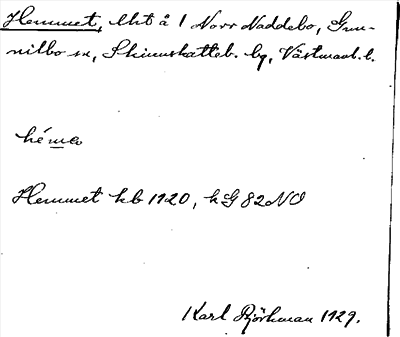 Hemmet, lht å 1 Norr Naddebo, Gun-
nilbo sn, Skinnskatteb. bg, Västmanl. l.
hémə
Hemmet kb 1920, k G 82 NO
Karl Björkman 1929.